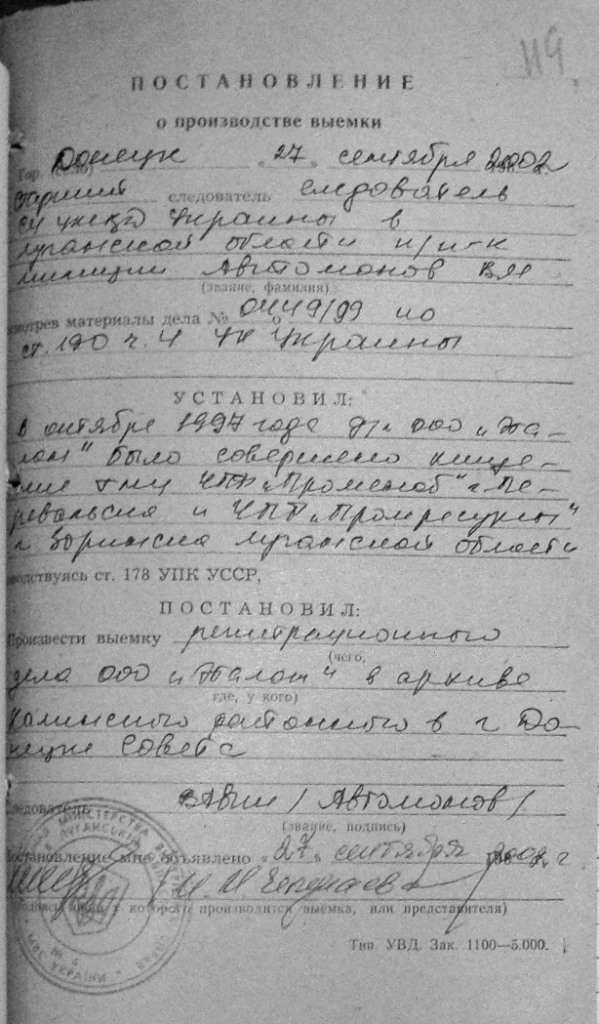 119.
ПОСТАНОВЛЕНИЕ
о производстве выемки
Гор. Донецк „27„ сентября 2002
Старший следователь следователь
Украины в
Луганской области п/п-к
милиции Автомонов ВН
(звание, фамилия)
смотрев материалы дела № 0449/99 по
ст. 190 ч. 4 УК Украины
УСТАНОВИЛ:
В октябре 1997 года ООО „Эта-
лон" было совершено хище-
ние тмц ЧПП „Променоб" г. Пе-
ревальска и ЧПП „Промресурсы"
г Зоринска Луганской области
водствуясь ст. 178 УПК УССР,
ПОСТАНОВИЛ:
Произвести выемку регистрационного
(чего,
дела ООО „Эталон" в архиве
где, у кого)
Калининского районного в г До-
нецке Совета
Следователь ВАвт / Автомонов /
(звание, подпись)
Постановление мне объявлено «27» сентября 2002 г
(подпись лица у которого производится выемка, или представителя)
Тип. УВД. Зак. 1100—5.000.